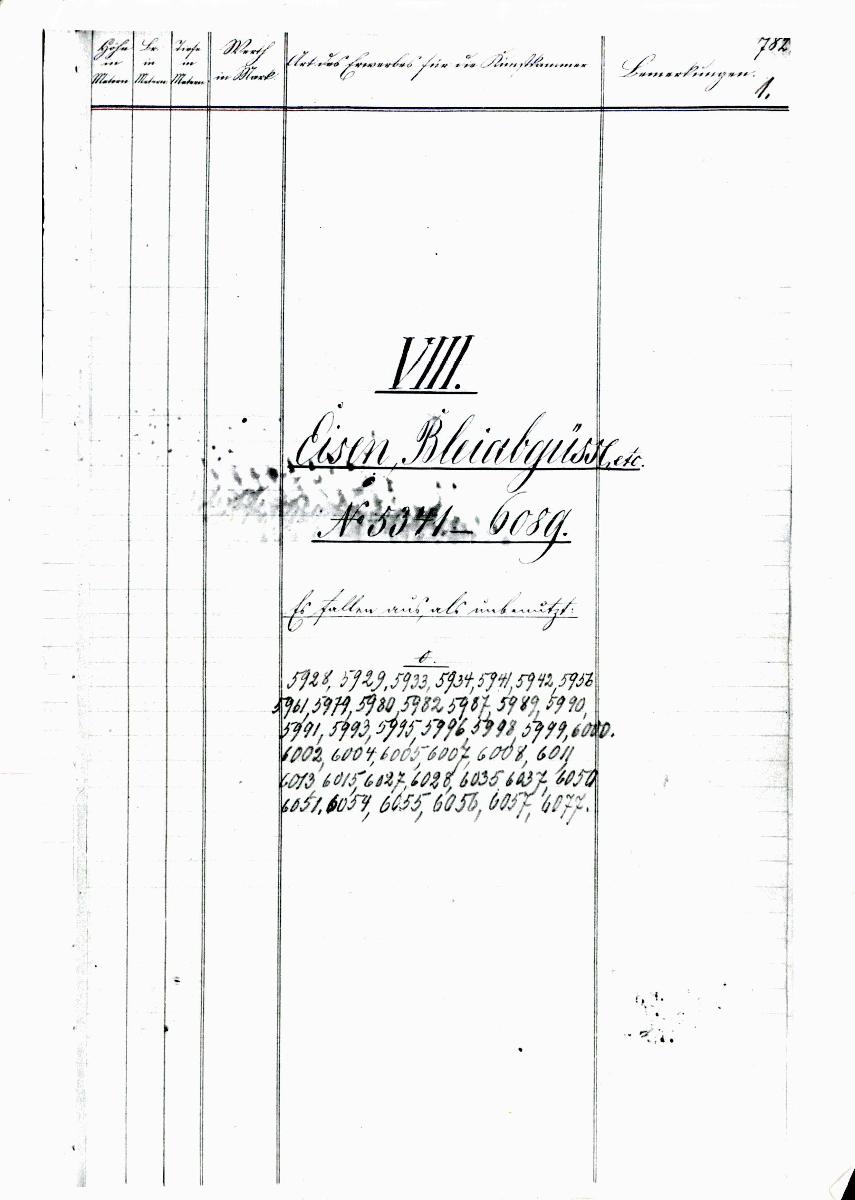 782
Höhe in Metern
Br. in Metern
Tiefe in Metern
Werth in Mark
Art des Erwerbes für die Kunstkammer
Bemerkungen.
1.
VIII.
Eisen, Bleiabgüsse, etc.
No 5341 — 6089.
Es fallen aus, als unbenutzt:
5928, 5929, 5933, 5934, 5941, 5942, 5956
5961, 5979, 5980, 5982 5987, 5989, 5990,
5991, 5993, 5995, 5996, 5998, 5999, 6000.
6002, 6004, 6005, 6007, 6008, 6011
6013, 6015, 6027, 6028, 6035, 6037, 6050
6051, 6054, 6055, 6056, 6057, 6077.